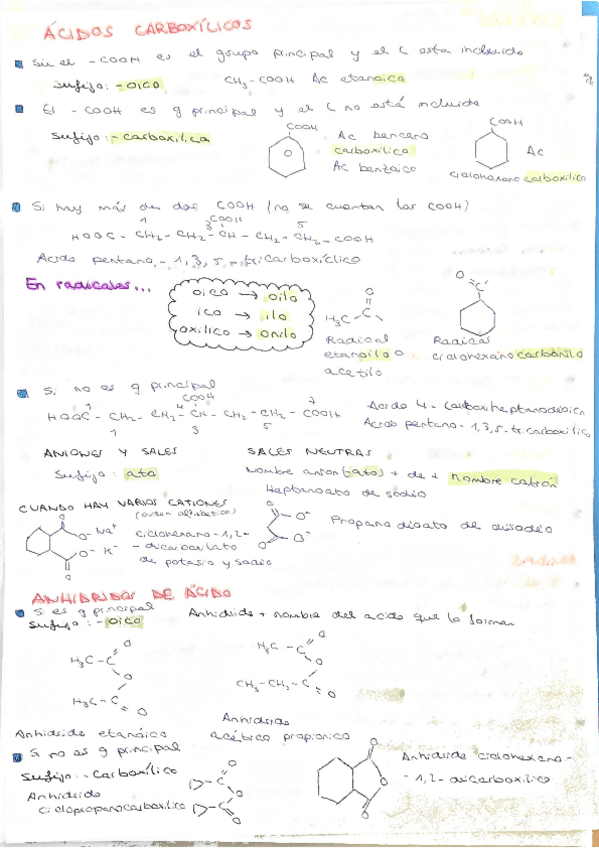 ÁCIDOS CARBOXÍLICOS
Si el -COOH es el grupo principal y el C esta incluido
Sufijo: -OICO CH3-COOH Ac etanoico
El -COOH es g principal y el C no está incluido
Sufijo: -carboxilico
COOH
Ac benceno
carboxilico
Ac benzoico
COOH
Ac
ciclohexano carboxilico
Si hay más de dos COOH (no se cuentan los COOH)
1 3 COOH 5
HOOC - CH2 - CH2 - CH - CH2 - CH2 - COOH
Acido pentano - 1,3,5 - tricarboxíclico
En radicales...
oico → oilo
ico → ilo
oxilico → onilo
O
H3C-C
Radical
etanoilo o
acetilo
O
C
Radical
ciclohexano carbonilo
Si no es g principal
COOH
HOOC - CH2 - CH2 - CH - CH2 - CH2 - COOH
1 4 7
1 3 5
Acido 4-carboxiheptanodioico
Acido pentano-1,3,5-tricarboxilico
ANIONES Y SALES
Sufijo: ato
SALES NEUTRAS
Nombre anion (ato) + de + nombre catión
Heptanoato de sodio
CUANDO HAY VARIOS CATIONES
(orden alfabetico)
O
O- Na+
O- K+
O
ciclohexano-1,2-
-dicarboxilato
de potasio y sodio
O
O-
O-
O
Propanodioato de disodio
ANHIDRIDOS DE ÁCIDO
Si es g principal
Sufijo: -oico
Anhidrido + nombre del acido que lo forman
O
H3C-C
O
H3C-C
O
Anhidrido etanóico
O
H3C-C
O
CH3-CH2-C
O
Anhidrido
acético propionico
Si no es g principal
Sufijo: -carboxílico
Anhidrido
ciclopropanocarboxilico
O
C
O
C
O
O
O
O
Anhidrido ciclohexano-
-1,2-dicarboxilico